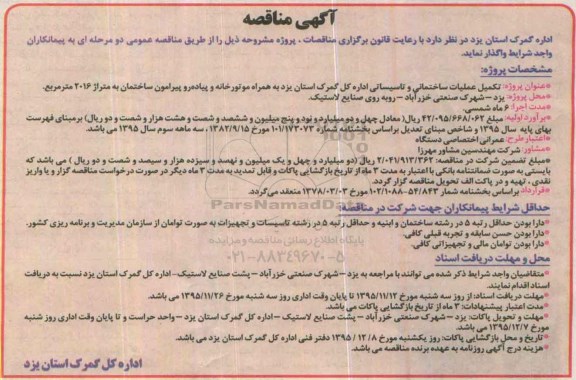 آگهی مناقصه
اداره گمرک استان یزد در نظر دارد با رعایت قانون برگزاری مناقصات ، پروژه مشروحه ذیل را از طریق مناقصه عمومی دو مرحله ای به پیمانکاران
واجد شرایط واگذار نماید.
مشخصات پروژه:
*عنوان پروژه: تکمیل عملیات ساختمانی و تاسیساتی اداره کل گمرک استان یزد به همراه موتورخانه و پیاده‌رو پیرامون ساختمان به متراژ ۲۰۱۶ مترمربع.
*محل پروژه: یزد – شهرک صنعتی خزرآباد – روبه روی صنایع لاستیک.
*مدت اجرا: ۶ ماه شمسی.
*برآورد اولیه: مبلغ ۴۲/۰۹۵/۶۶۸/۰۶۲ ریال( معادل چهل و دو میلیارد و نود و پنج میلیون و ششصد و شصت و هشت هزار و شصت و دو ریال) برمبنای فهرست
بهای پایه سال ۱۳۹۵ و شاخص مبنای تعدیل براساس بخشنامه شماره ۱۰۱/۱۷۳۰۷۳ مورخ ۱۳۸۲/۹/۱۵ ، سه ماهه سوم سال ۱۳۹۵ می باشد.
*اعتبار طرح: عمرانی اختصاصی دستگاه
*مشاور: شرکت مهندسین مشاور مهرزا
*مبلغ تضمین شرکت در مناقصه: ۲/۰۴۱/۹۱۳/۳۶۲ ریال (دو میلیارد و چهل و یک میلیون و نهصد و سیزده هزار و سیصد و شصت و دو ریال ) می باشد که
بایستی به صورت ضمانتنامه بانکی با اعتبار به مدت ۳ ماه از تاریخ بازگشایی پاکات و قابل تمدید به مدت ۳ ماه دیگر در صورت درخواست مناقصه گزار و یا واریز
نقدی ، تهیه و در پاکت الف تحویل مناقصه گزار گردد.
*قرارداد براساس بخشنامه شمار ۵۴/۸۴۳-۱۰۲/۱۰۸۸ مورخ ۱۳۷۸/۰۳/۰۳ منعقد می‌گردد.
حداقل شرایط پیمانکاران جهت شرکت در مناقصه:
*دارا بودن حداقل رتبه ۵ در رشته ساختمان و ابنیه و حداقل رتبه ۵ در رشته تاسیسات و تجهیزات به صورت توامان از سازمان مدیریت و برنامه ریزی کشور.
*دارا بودن حسن سابقه و تجربه قبلی کافی.
*دارا بودن توامان مالی و تجهیزاتی کافی.
محل و مهلت دریافت اسناد
*متقاضیان واجد شرایط ذکر شده می توانند با مراجعه به یزد – شهرک صنعتی خزرآباد – پشت صنایع لاستیک- اداره کل گمرک استان یزد نسبت به دریافت
اسناد اقدام نمایند.
*مهلت دریافت اسناد: از روز سه شنبه مورخ ۱۳۹۵/۱۱/۱۲ تا پایان وقت اداری روز سه شنبه مورخ ۱۳۹۵/۱۱/۲۶ می باشد.
*مدت اعتبار پیشنهادات: ۳ ماه از تاریخ بازگشایی پاکات می باشد.
*مهلت و تحویل پاکات: یزد – شهرک صنعتی خزرآباد – پشت صنایع لاستیک – اداره کل گمرک استان یزد – واحد حراست و تا پایان وقت اداری روز شنبه
مورخ ۱۳۹۵/۱۲/۷ می باشد.
*تاریخ و محل بازگشایی پاکات: روز یکشنبه مورخ ۸ / ۱۲ / ۱۳۹۵ دفتر فنی اداره کل گمرک استان یزد می باشد.
*هزینه درج آگهی روزنامه به عهده برنده مناقصه می باشد.
اداره کل گمرک استان یزد
ParsNamadData
پایگاه اطلاع رسانی مناقصه و مزایده
۰۲۱-۸۸۳۴۹۶۷۰-۵